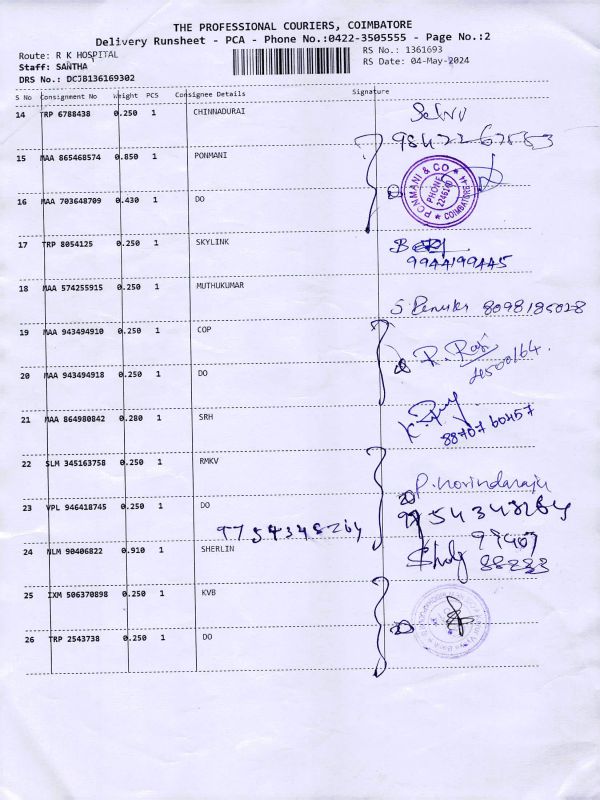 THE PROFESSIONAL COURIERS, COIMBATORE
Delivery Runsheet - PCA - Phone No.:0422-3505555 - Page No.:2
Route: R K HOSPITAL
RS No.: 1361693
Staff: SANTHA
RS Date: 04-May-2024
DRS No.: DCJB136169302
S No Consignment No Weight PCS Consignee Details Signature
14 TRP 6788438 0.250 1 CHINNADURAI
Selvi
15 MAA 865468574 0.850 1 PONMANI
PONMANI & CO
PHONE
COIMBATORE
16 MAA 703648709 0.430 1 DO
17 TRP 8054125 0.250 1 SKYLINK
9944199445
18 MAA 574255915 0.250 1 MUTHUKUMAR
S Renuka 8098186028
19 MAA 943494910 0.250 1 COP
R. Raji
4500164.
20 MAA 943494918 0.250 1 DO
21 MAA 864980842 0.280 1 SRH
88707 60457
22 SLM 345163758 0.250 1 RMKV
P. Govindaraju
23 VPL 946418745 0.250 1 DO
9754348264
9754348264
24 NLM 90406822 0.910 1 SHERLIN
99407
88233
25 IXM 506370898 0.250 1 KVB
26 TRP 2543738 0.250 1 DO